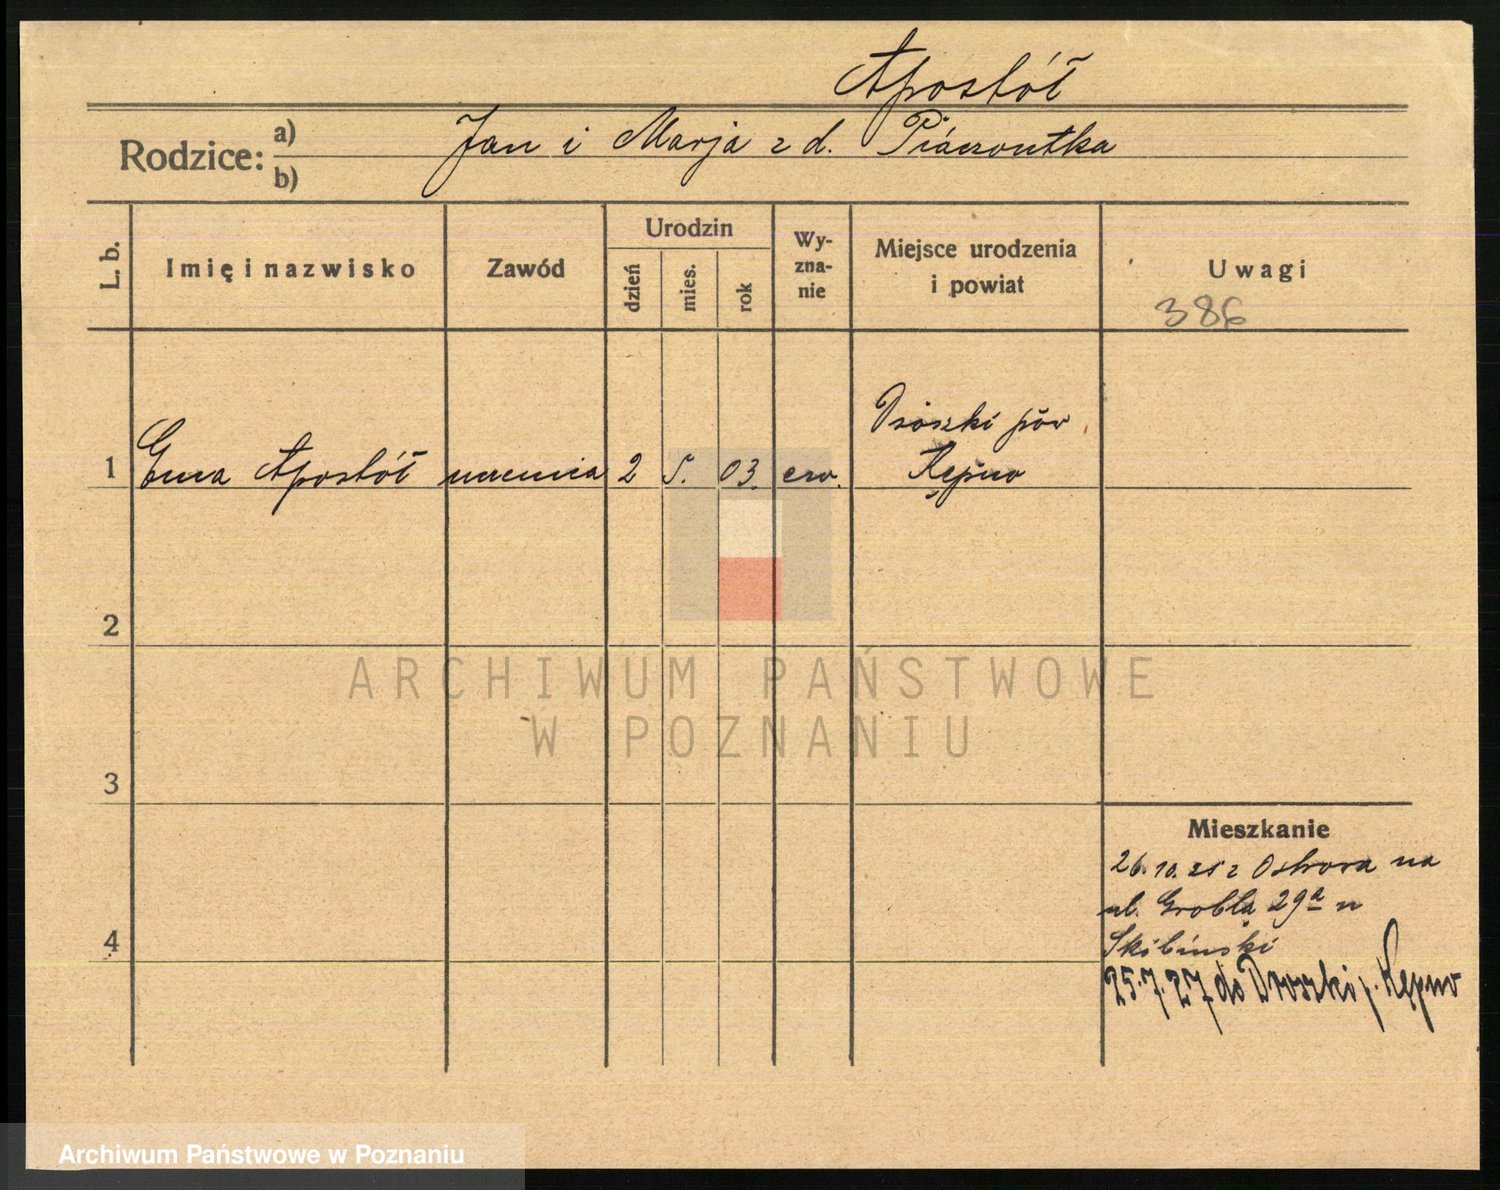 Apostół
Rodzice: a) b)
Jan i Marja z d.
L. b.
Imię i nazwisko
Zawód
Urodzin
dzień
mies.
rok
Wy-
zna-
nie
Miejsce urodzenia
i powiat
Uwagi
386
1 Ewa Apostół uczenica 2 5. 03. ew.
pow
Kępno
2
3
4
ARCHIWUM PAŃSTWOWE
W POZNANIU
Mieszkanie
26.10. z Ostrowa na
ul. Grobla 29a u
Skibinski
25.7.27 do Droszki p. Kępno
Archiwum Państwowe w Poznaniu